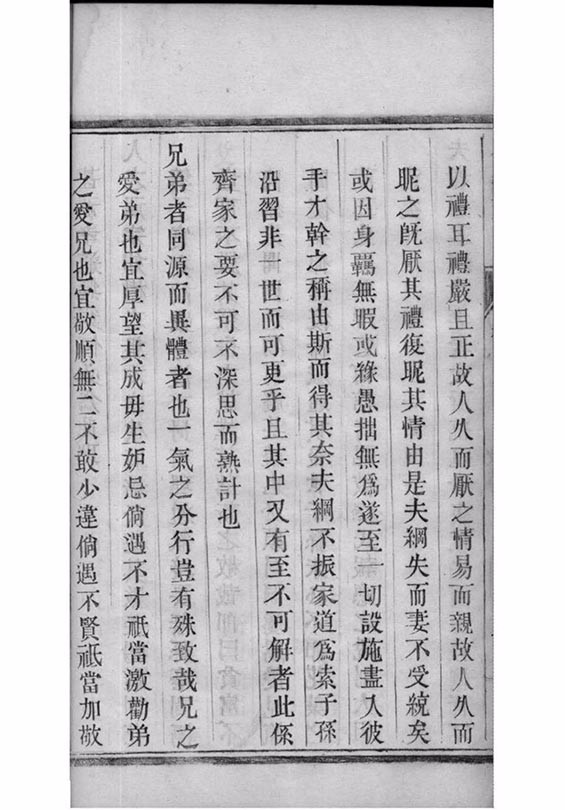 以禮耳禮嚴且正故人久而厭之情易而親故人久而
昵之旣厭其禮復昵其情由是夫綱失而妻不受統矣
或因身羈無暇或緣愚拙無爲遂至一切設施盡入彼
手才幹之稱由斯而得其奈夫綱不振家道爲索子孫
沿習非一世而可更乎且其中又有至不可解者此係
齊家之要不可不深思而熟計也
兄弟者同源而異體者也一氣之分行豈有殊致哉兄之
愛弟也宜厚望其成毋生妒忌倘遇不才祇當激勸弟
之愛兄也宜敬順無二不敢少違倘遇不賢祗當加敬